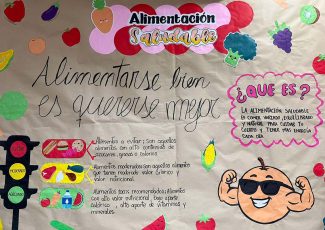 Alimentación
Saludable
Alimentarse bien
es quererse mejor
¿QUE ES?
LA ALIMENTACIÓN SALUDABLE
ES COMER VARIADO, EQUILIBRADO
Y NATURAL PARA CUIDAR TU
CUERPO Y TENER MÁS ENERGÍA
CADA DÍA.
Alimentos a evitar: Son aquellos
alimentos con alto contenido de
azúcares, grasas o calorías.
Alimentos moderados: son aquellos alimentos
que tienen moderado valor calórico y
valor nutricional.
Alimentos recomendados: Alimentos
con alto valor nutricional, bajo aporte
calórico y alto aporte de vitaminas y
minerales.